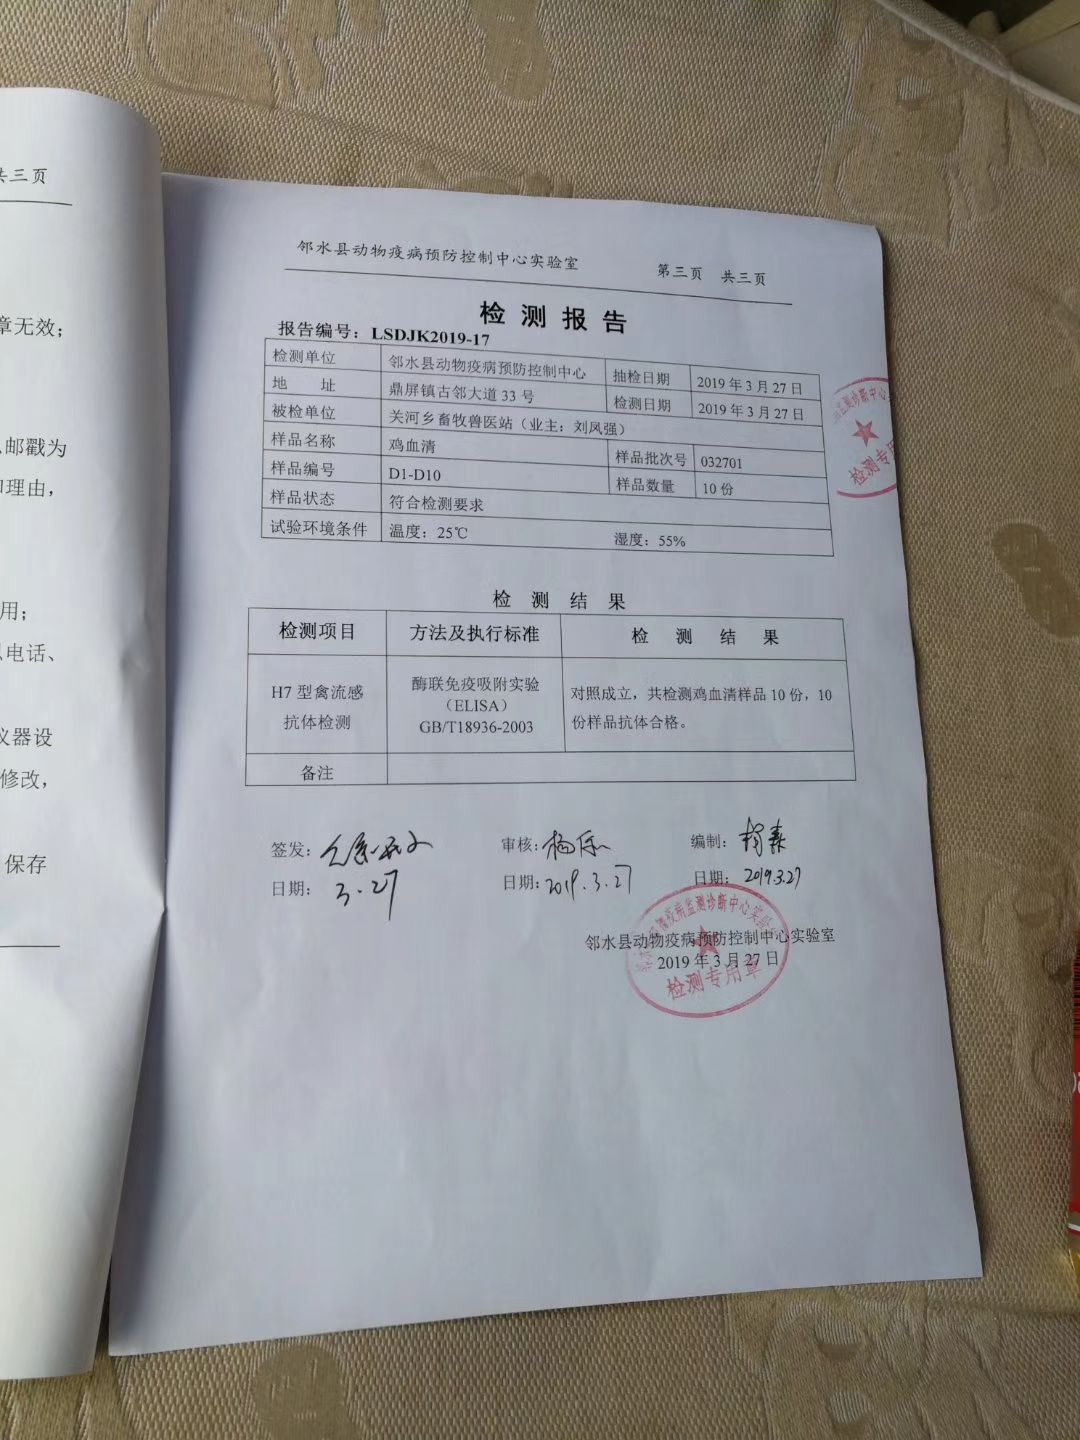 共三页
章无效；
邮戳为
理由，
用；
电话、
仪器设
修改，
保存
邻水县动物疫病预防控制中心实验室 第三页 共三页
检测报告
报告编号：LSDJK2019-17
检测单位 邻水县动物疫病预防控制中心 抽检日期 2019年3月27日
地 址 鼎屏镇古邻大道33号 检测日期 2019年3月27日
被检单位 关河乡畜牧兽医站（业主：刘凤强）
样品名称 鸡血清 样品批次号 032701
样品编号 D1-D10 样品数量 10份
样品状态 符合检测要求
试验环境条件 温度：25℃ 湿度：55%
检 测 结 果
检测项目 方法及执行标准 检 测 结 果
H7型禽流感
抗体检测
酶联免疫吸附实验
（ELISA）
GB/T18936-2003
对照成立，共检测鸡血清样品10份，10
份样品抗体合格。
备注
签发： 审核： 编制：
日期：3.27 日期：2019.3.27 日期：2019.3.27
邻水县动物疫病预防控制中心实验室
2019年3月27日
疫病监测诊断中心
检测专用章
监测诊断中心
检测专用